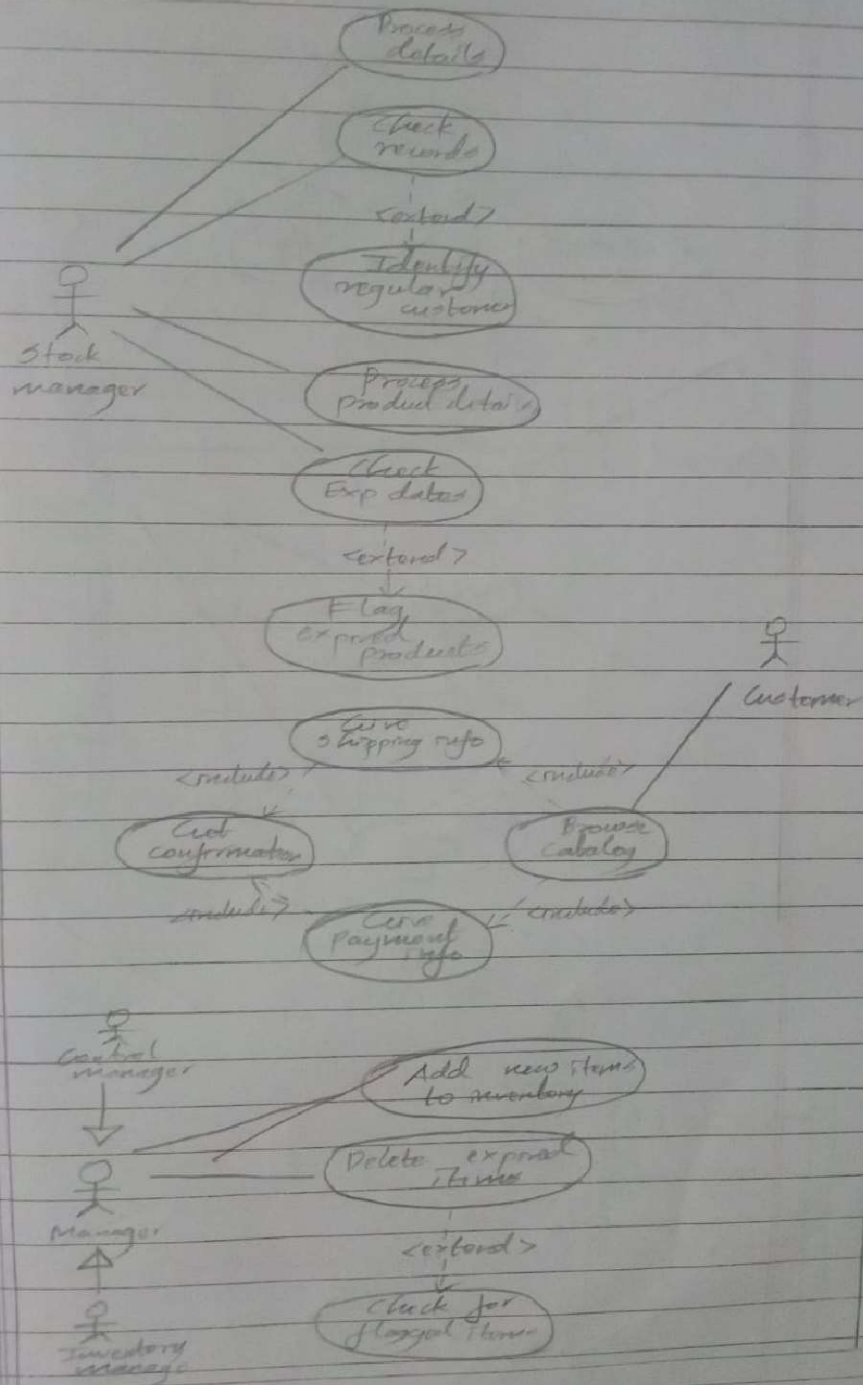 Process
details
Check
records
<extend>
Identify
regular
customer
Stock
manager
Process
product details
Check
Exp dates
<extend>
Flag
expired
products
Customer
Give
shipping info
<include>
<include>
Get
confirmation
Browse
catalog
<include>
<include>
Give
payment
info
Control
manager
Add new items
to inventory
Delete expired
items
Manager
<extend>
Check for
flagged items
Inventory
manage